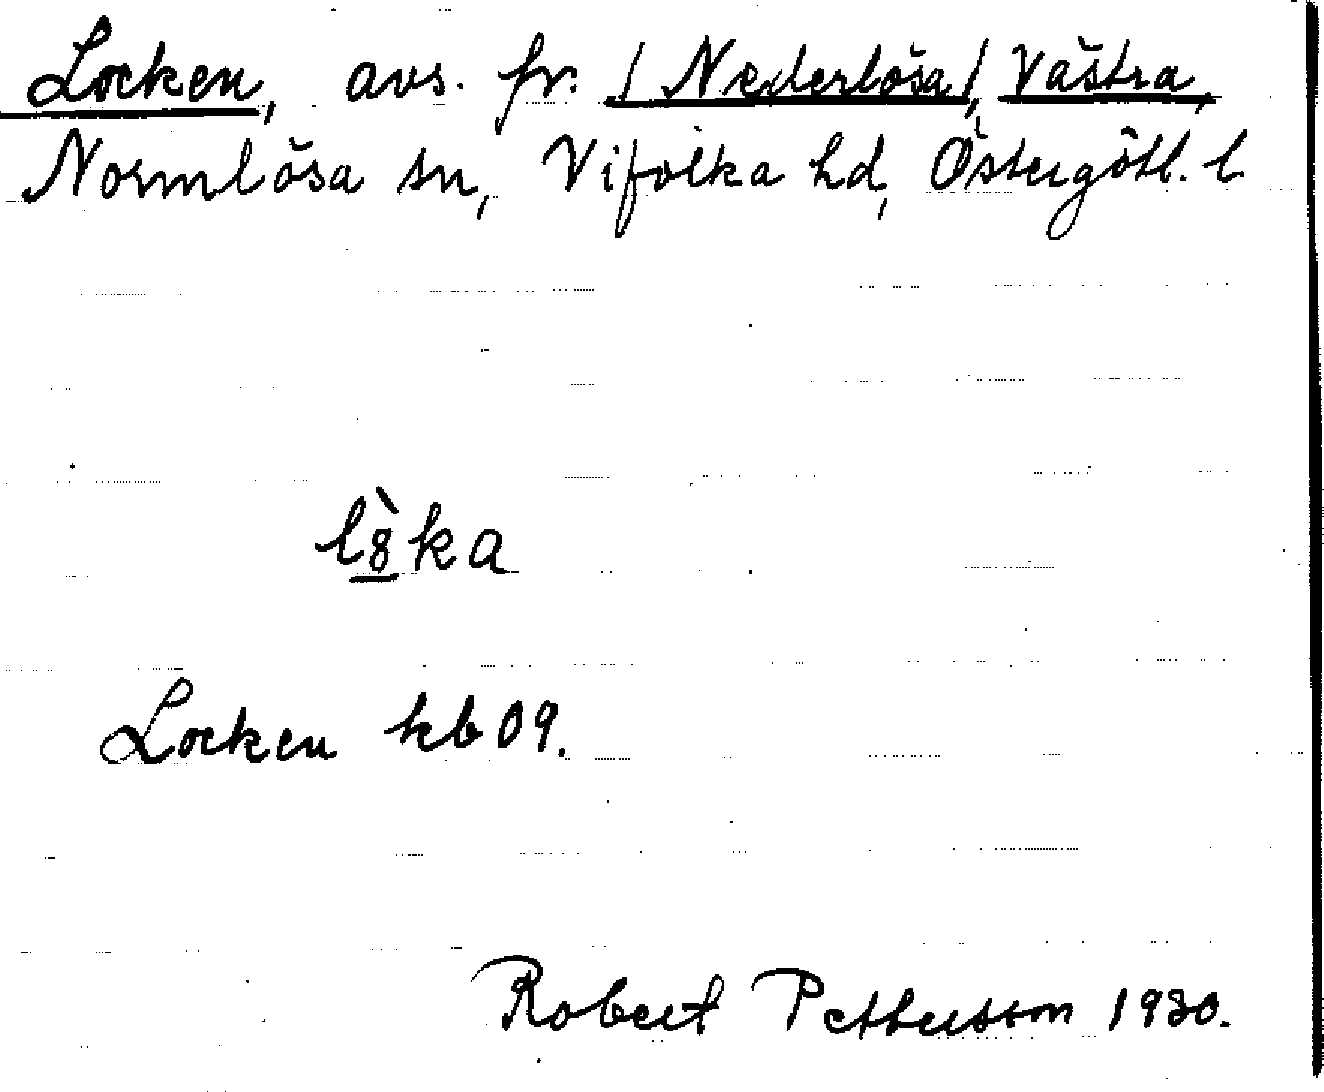 Locken, avs. fr. / Nederlösa /, Västra,
Normlösa sn, Vifolka hd, Östergötl. l.
l8̠̀ka
Locken kb 09.
Robert Pettersson 1930.